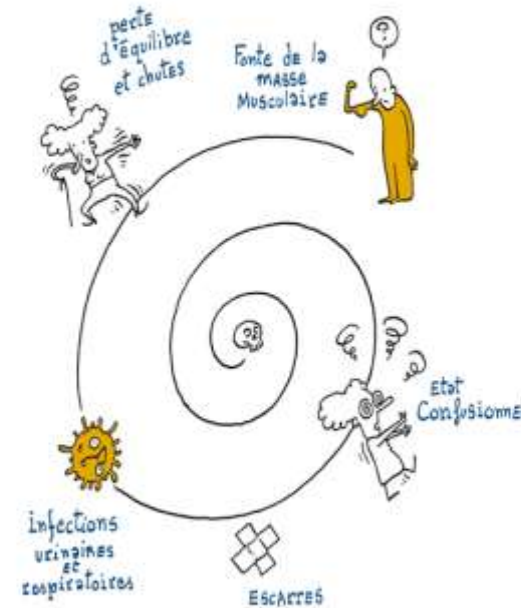 perte
d'équilibre
et chutes
Fonte de la
masse
Musculaire
?
Etat
Confusionne
infections
urinaires
et
respiratoires
Escarres